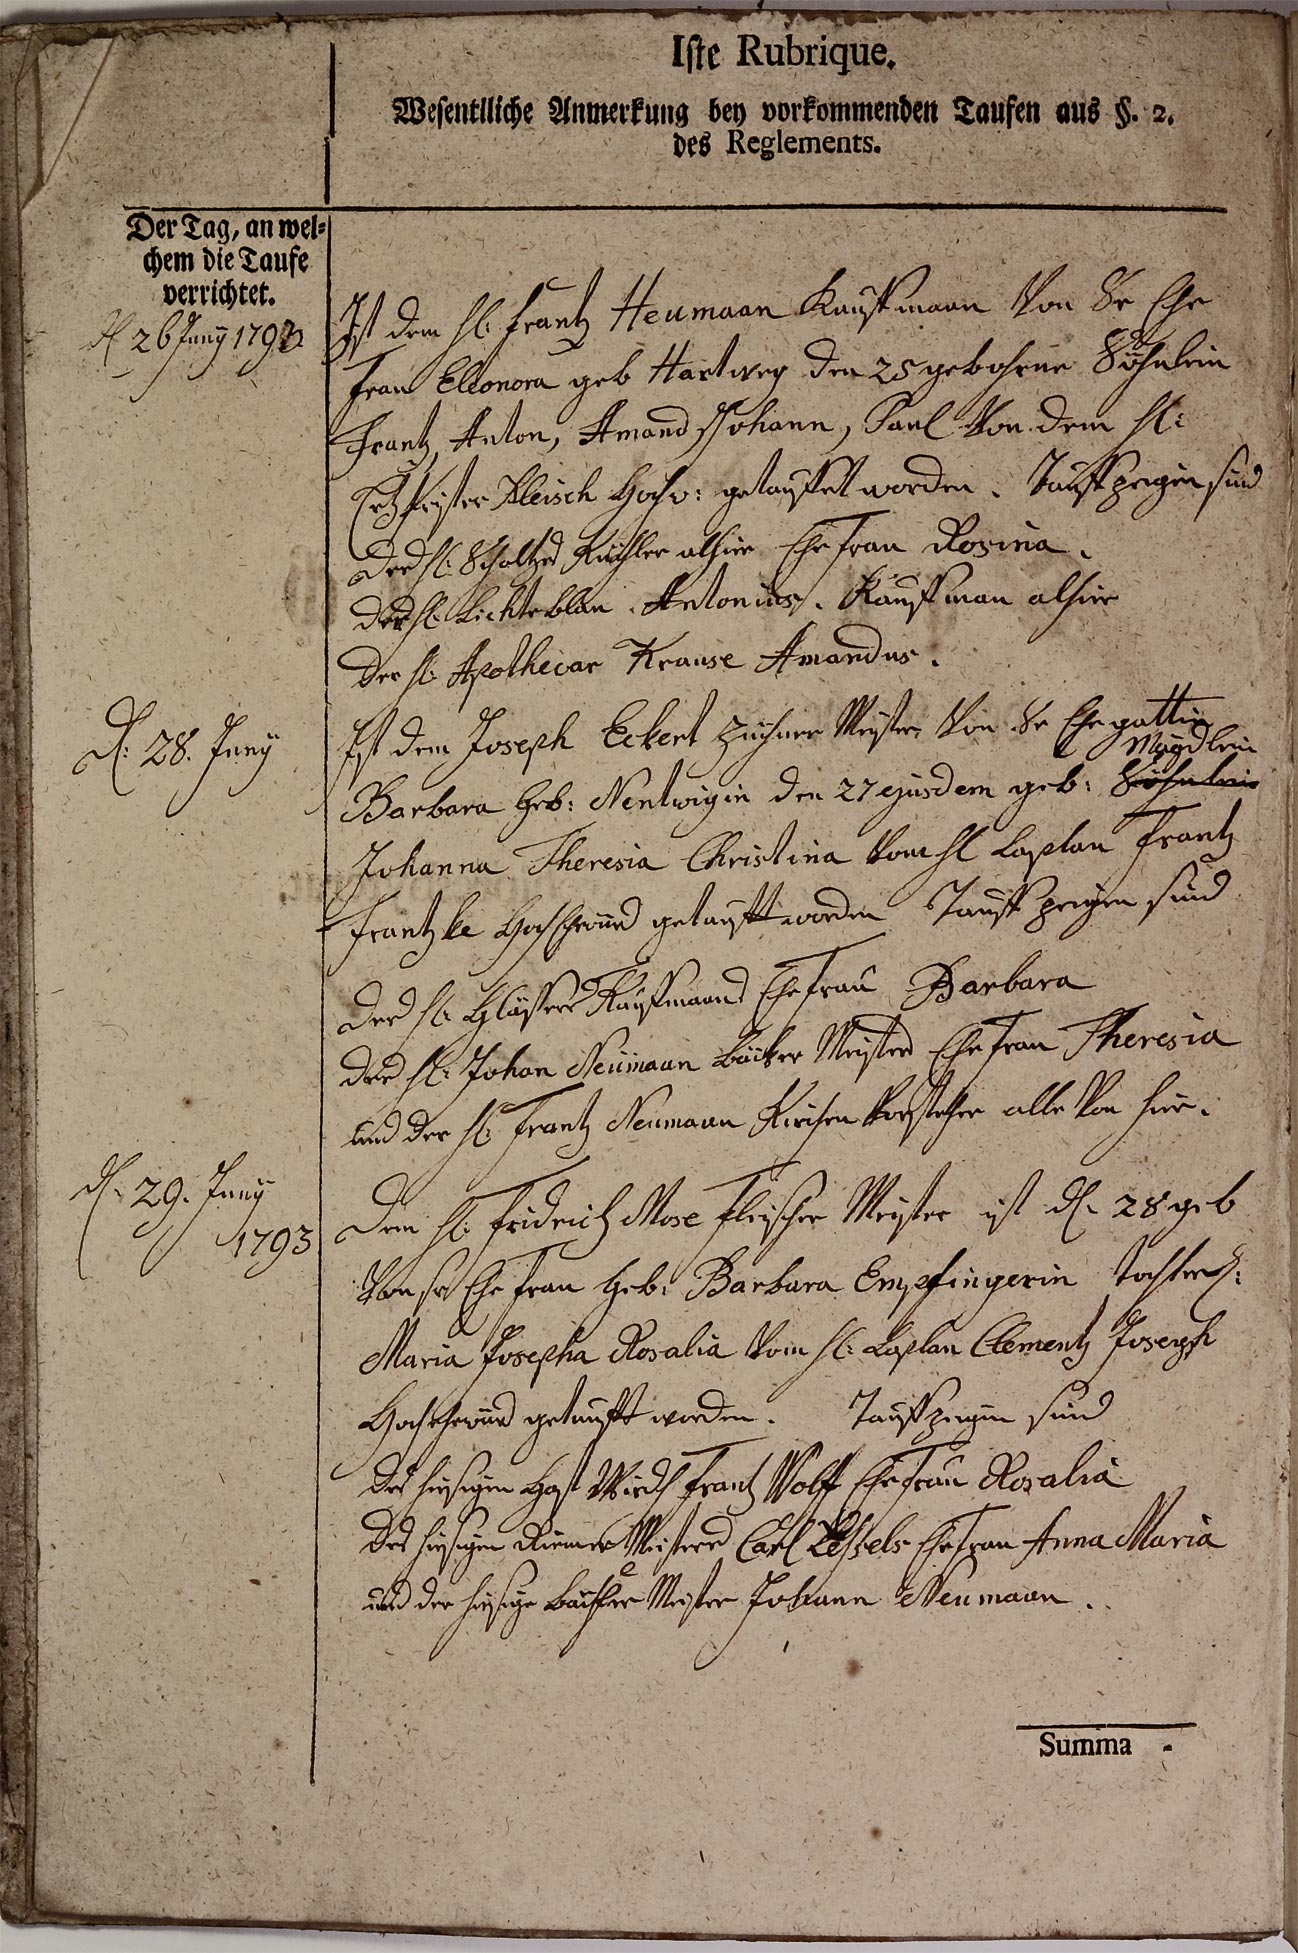 Iste Rubrique.
Wesentlliche Anmerkung bey vorkommenden Taufen aus §. 2.
des Reglements.
Der Tag, an wel-
chem die Taufe
verrichtet.
d 26 Juny 1793.
Ist dem H: Frantz Heumann Kauffmann Von Sr Ehe
Frau Eleonora geb Hartweg den 25 gebohrne Söhnlein
Frantz, Anton, Amand Johann, Paul Von dem H:
Ertzprister Kleisch Hochw: getauffet worden. Tauffzeigen sind
des H: Scholtzes Küchler alhier Ehefrau Rosina.
der H: Lichteblau. Antonius. Kauffman alhier
der H: Apothecar Krause Amandus.
d: 28. Juny
Ist dem Joseph Eckert Züchner Meister Von Sr Ehegattin
Mägdlein
Barbara Geb: Nentwigin den 27 ejusdem geb: Söhnlein
Johanna Theresia Christina Vom H Caplan Frantz
Frantzke Hochehrwürd getaufft worden Tauffzeigen sind
des H: Glässers Kauffmanns Ehefrau Barbara
des H: Johan Neümann Bäcker Meisters Ehefrau Theresia
und der H: Frantz Neumann Kirchen Vorsteher alle Von hier.
d. 29. Juny
1793
Dem H: Fridrich Mose Fleischer Meister ist d. 28 geb
Von sr Ehefrau Geb: Barbara Empfingerin Tochter:
Maria Josepha Rosalia Vom H: Caplan Clementz Joseph
Hochehrwürd getaufft worden. Tauffzeigen sind
des hiesigen Gast Wirdts Frantz Wolff Ehefrau Rosalia
des hiesigen Riemer Meisters Carl Ehefrau Anna Maria
und der hiesige Bäcker Meister Johann Neumann.
Summa -